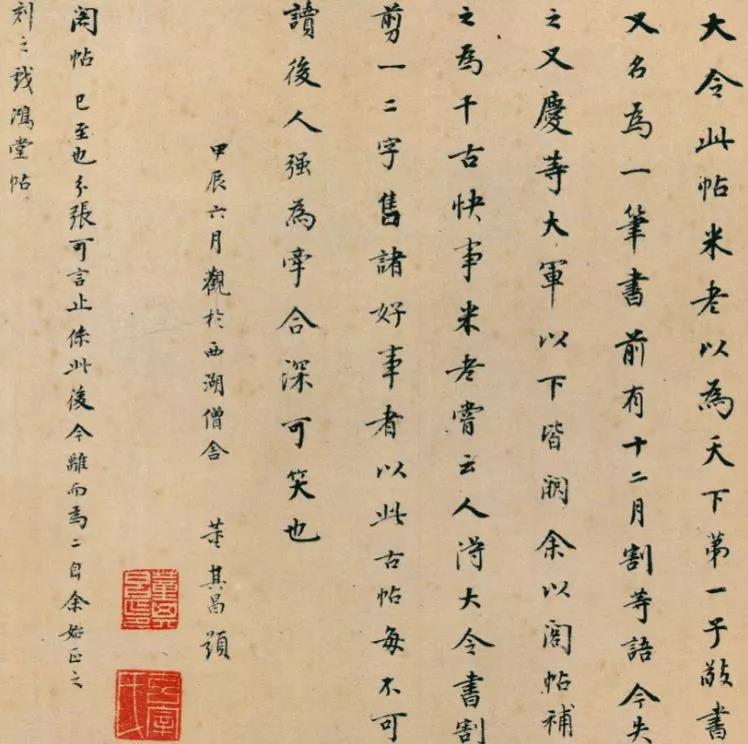 大令此帖米老以為天下第一子敬書
又名為一筆書前有十二月割等語今失
之又慶等大軍以下皆闕余以閣帖補
之為千古快事米老嘗云人得大令書割
剪一二字售諸好事者以此古帖每不可
讀後人强為牽合深可笑也
甲辰六月觀於西湖僧舍 董其昌題
閣帖已至也分張可言止係此後今離而為二自余始正之
刻之戲鴻堂帖